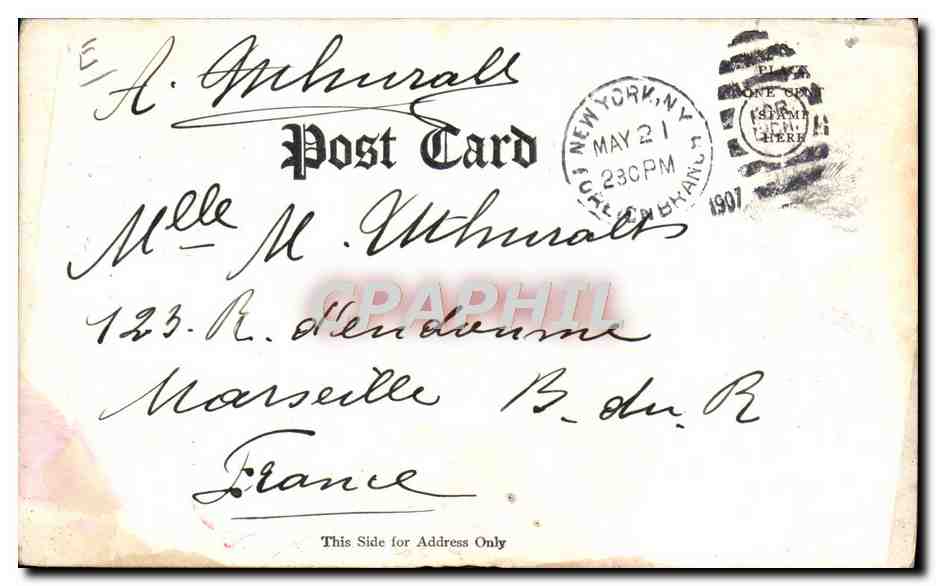 E
A.
Post Card
NEW YORK, N.Y.
MAY 21
230 PM
BRANCH
1907
PLACE
ONE CENT
STAMP
HERE
Mlle M.
CPAPHIL
123. R. d'endoume
Marseille B. du. R
France
This Side for Address Only